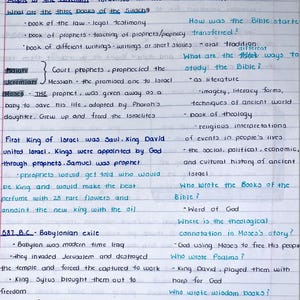 What are the three books of the Jewish?
· book of the law - legal testimony
· book of prophets - teaching of prophets/prophecy
· book of different writings - writings or short stories
Isaiah
Jeremiah
Court prophets, prophecied the
Messiah - the promised one to Israel
Moses - THE prophet, was given away as a
baby to save his life. adopted by Pharaoh's
daughter. Grew up and freed the Israelites
First King of Israel was Saul. King David
united Israel. Kings were appointed by God
through prophets. Samuel was prophet
· prophets would get told who would
be King and would make the best
perfume with 28 rare flowers and
annoint the new king with the oil
587 B.C. - Babylonian exile
· Babylon was modern time Iraq
· they invaded Jerusalem and destroyed
the temple and forced the captured to work
· King Syrus brought them out to
freedom
How was the Bible start
transferred?
· oral tradition
What are the different ways to
study the Bible?
· as literature
· imagery, literary forms,
techniques of ancient world
· book of theology
· religious interpretations
of events in people's lives
· the social, political, economic,
and cultural history of ancient
Israel
Who wrote the Books of the
Bible?
· Word of God
Where is the theological
connotation in Moses's story?
· God using Moses to free His people
Who wrote Psalms?
· King David, played them with
harp for God
Who wrote wisdom books?